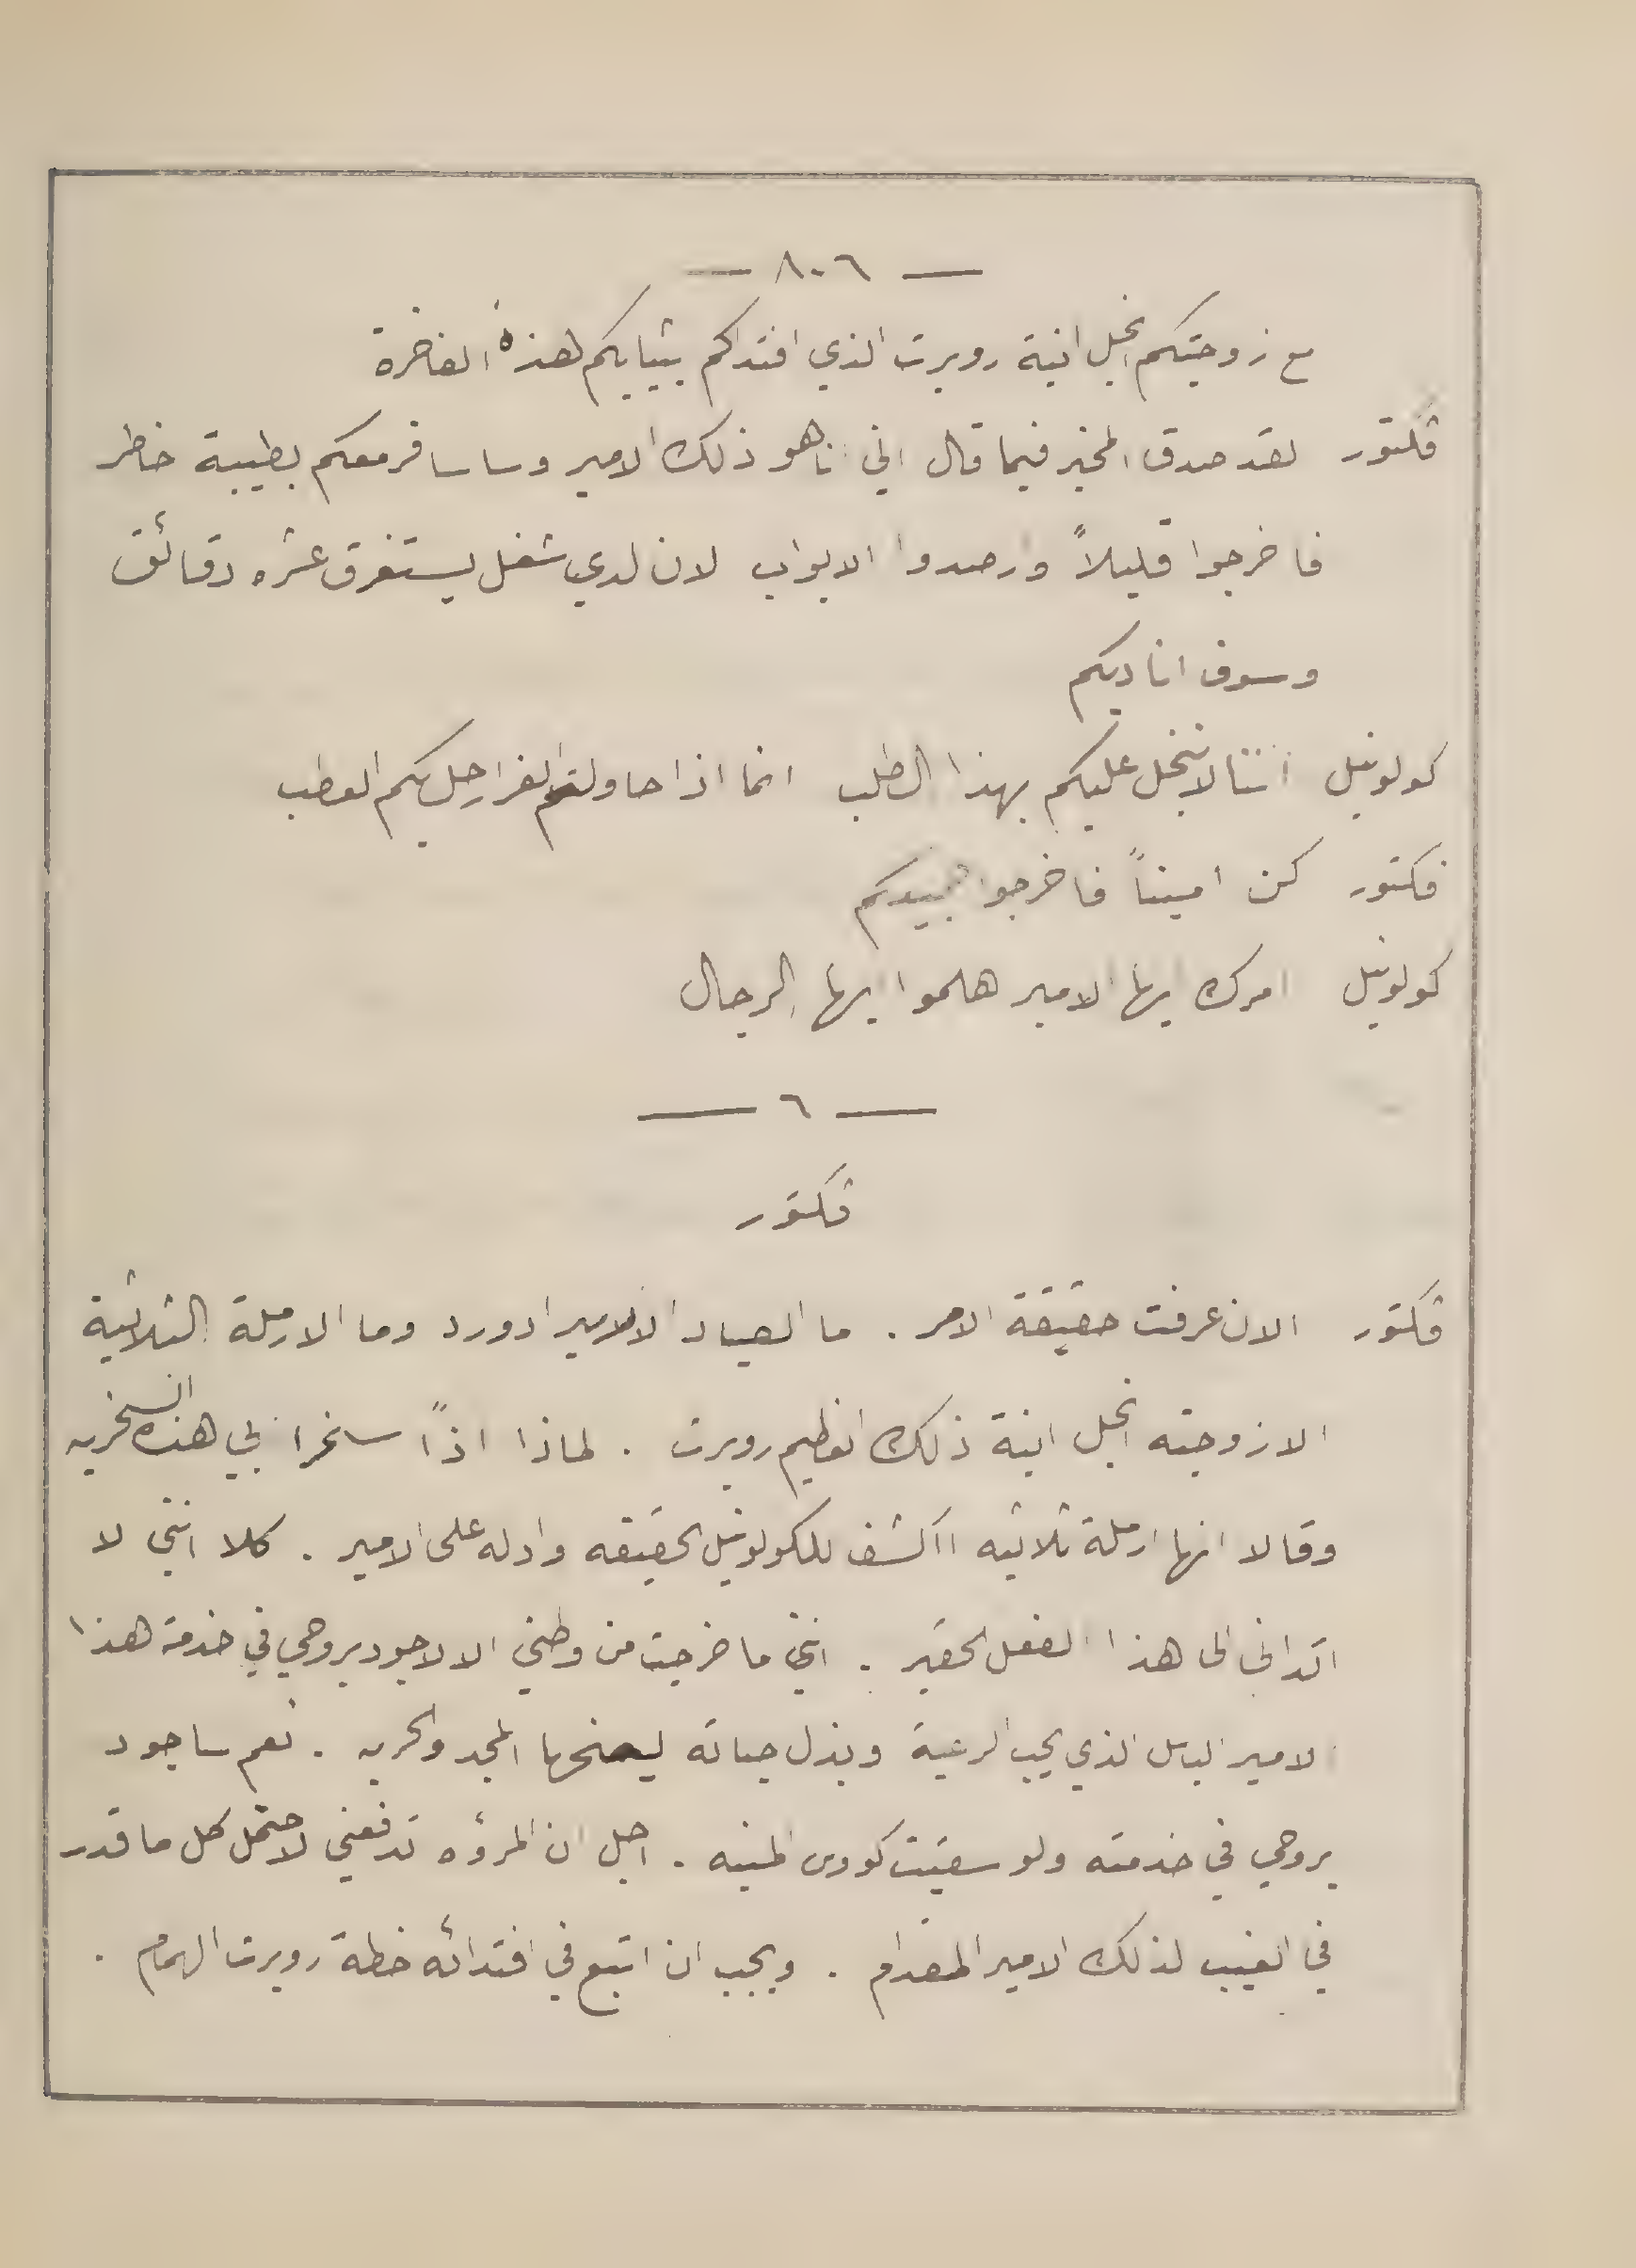 — ٨٠٦ —
مع زوجتكم انجل ابنة روبرت الذي افتداكم بثيابكم هذه الفاخرة
ڤكتور لقد صدق المخبر فيما قال اني انا هو ذلك الامير وساسافر معكم بطيبة خاطر
فاخرجوا قليلاً وارصدوا الابواب لان لدي شغل يستغرق عشره دقائق
وسوف اناديكم
كولونيل اننا لا نبخل عليكم بهذا الطلب انما اذا حاولتم الفرار حل بكم العطب
ڤكتور كن اميناً فاخرجوا
كولونيل امرك ايها الامير هلموا ايها الرجال
— ٦ —
ڤكتور
ڤكتور الان عرفت حقيقة الامر . ما الصياد الا الامير ادورد وما الارملة الثلاثية
الا زوجته انجل ابنة ذلك العظيم روبرت . لماذا اذاً سخرا بي هذه السخريه
وقالا انها ارملة ثلاثيه ااكشف للكولونيل الحقيقه وادله على الامير . كلا انني لا
اتدانى الى هذا الفعل الحقير . انني ما خرجت من وطني الا لاجود بروحي في خدمة هذا
الامير الباسل الذي يحب الرعية وبذل حياته ليمنحها المجد والحريه . نعم ساجود
بروحي في خدمته ولو سقيت كووس المنيه . اجل ان المرؤه تدفعني لاحتمل كل ما قدر
في الغيب لذلك الامير المقدام . ويجب ان اتبع في افتدائه خطة روبرت الهمام .